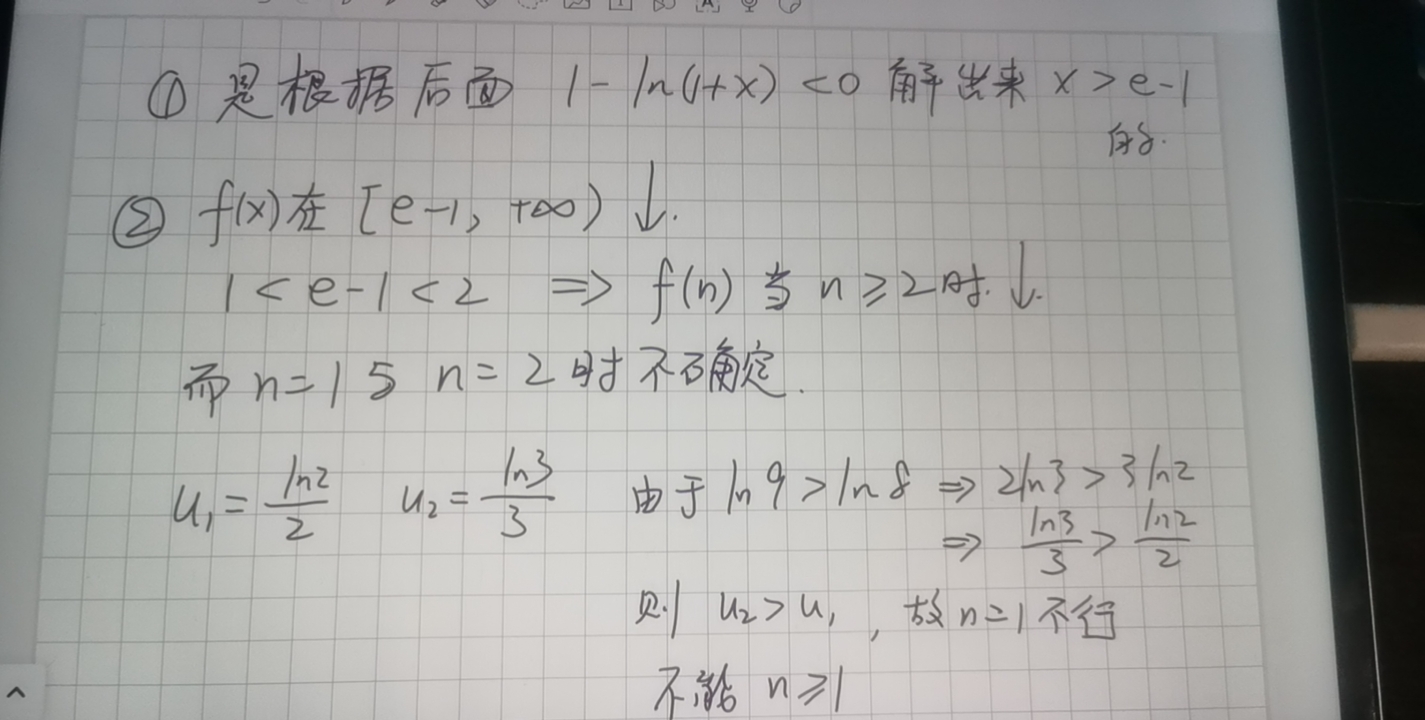 ① 是根据后面 1-ln(1+x)<0 解出来 x>e-1
的.
② f(x)在 [e-1, +∞) ↓.
1<e-1<2 ⇒ f(n) 当 n≥2时.↓.
而 n=1 与 n=2时 不确定.
u₁=ln2/2 u₂=ln3/3 由于 ln9>ln8 ⇒ 2ln3>3ln2
⇒ ln3/3>ln2/2
则 u₂>u₁, 故 n=1 不行
不能 n≥1